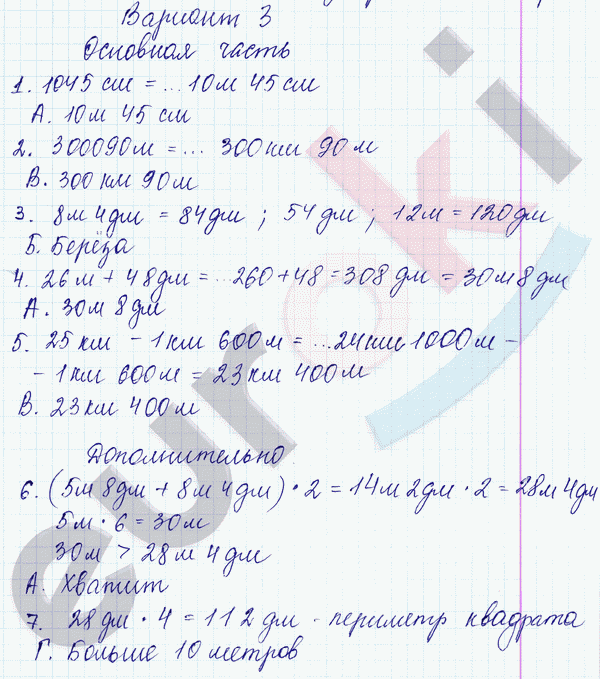 Вариант 3
Основная часть
1. 1045 см = ... 10м 45 см
А. 10м 45 см
2. 300090м = ... 300км 90м
В. 300 км 90м
3. 8м 4дм = 84дм ; 54дм ; 12м = 120дм
Б. Берёза
4. 26м + 48дм = ...260+48 = 308 дм = 30м8дм
А. 30м 8дм
5. 25км - 1км 600м = ...24км 1000м -
- 1км 600м = 23км 400м
В. 23км 400м
Дополнительно
6. (5м 8дм + 8м 4дм) · 2 = 14м 2дм · 2 = 28м 4дм
5м · 6 = 30м
30м > 28м 4дм
А. Хватит
7. 28дм · 4 = 112 дм - периметр квадрата
Г. Больше 10 метров
euroki